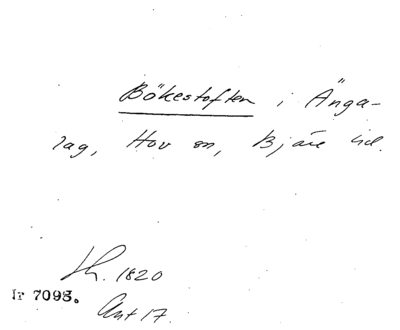 Bökestoften i Änga-
lag, Hov sn, Bjäre hd.
Lh. 1820
Ir 7093.
Ant 17.